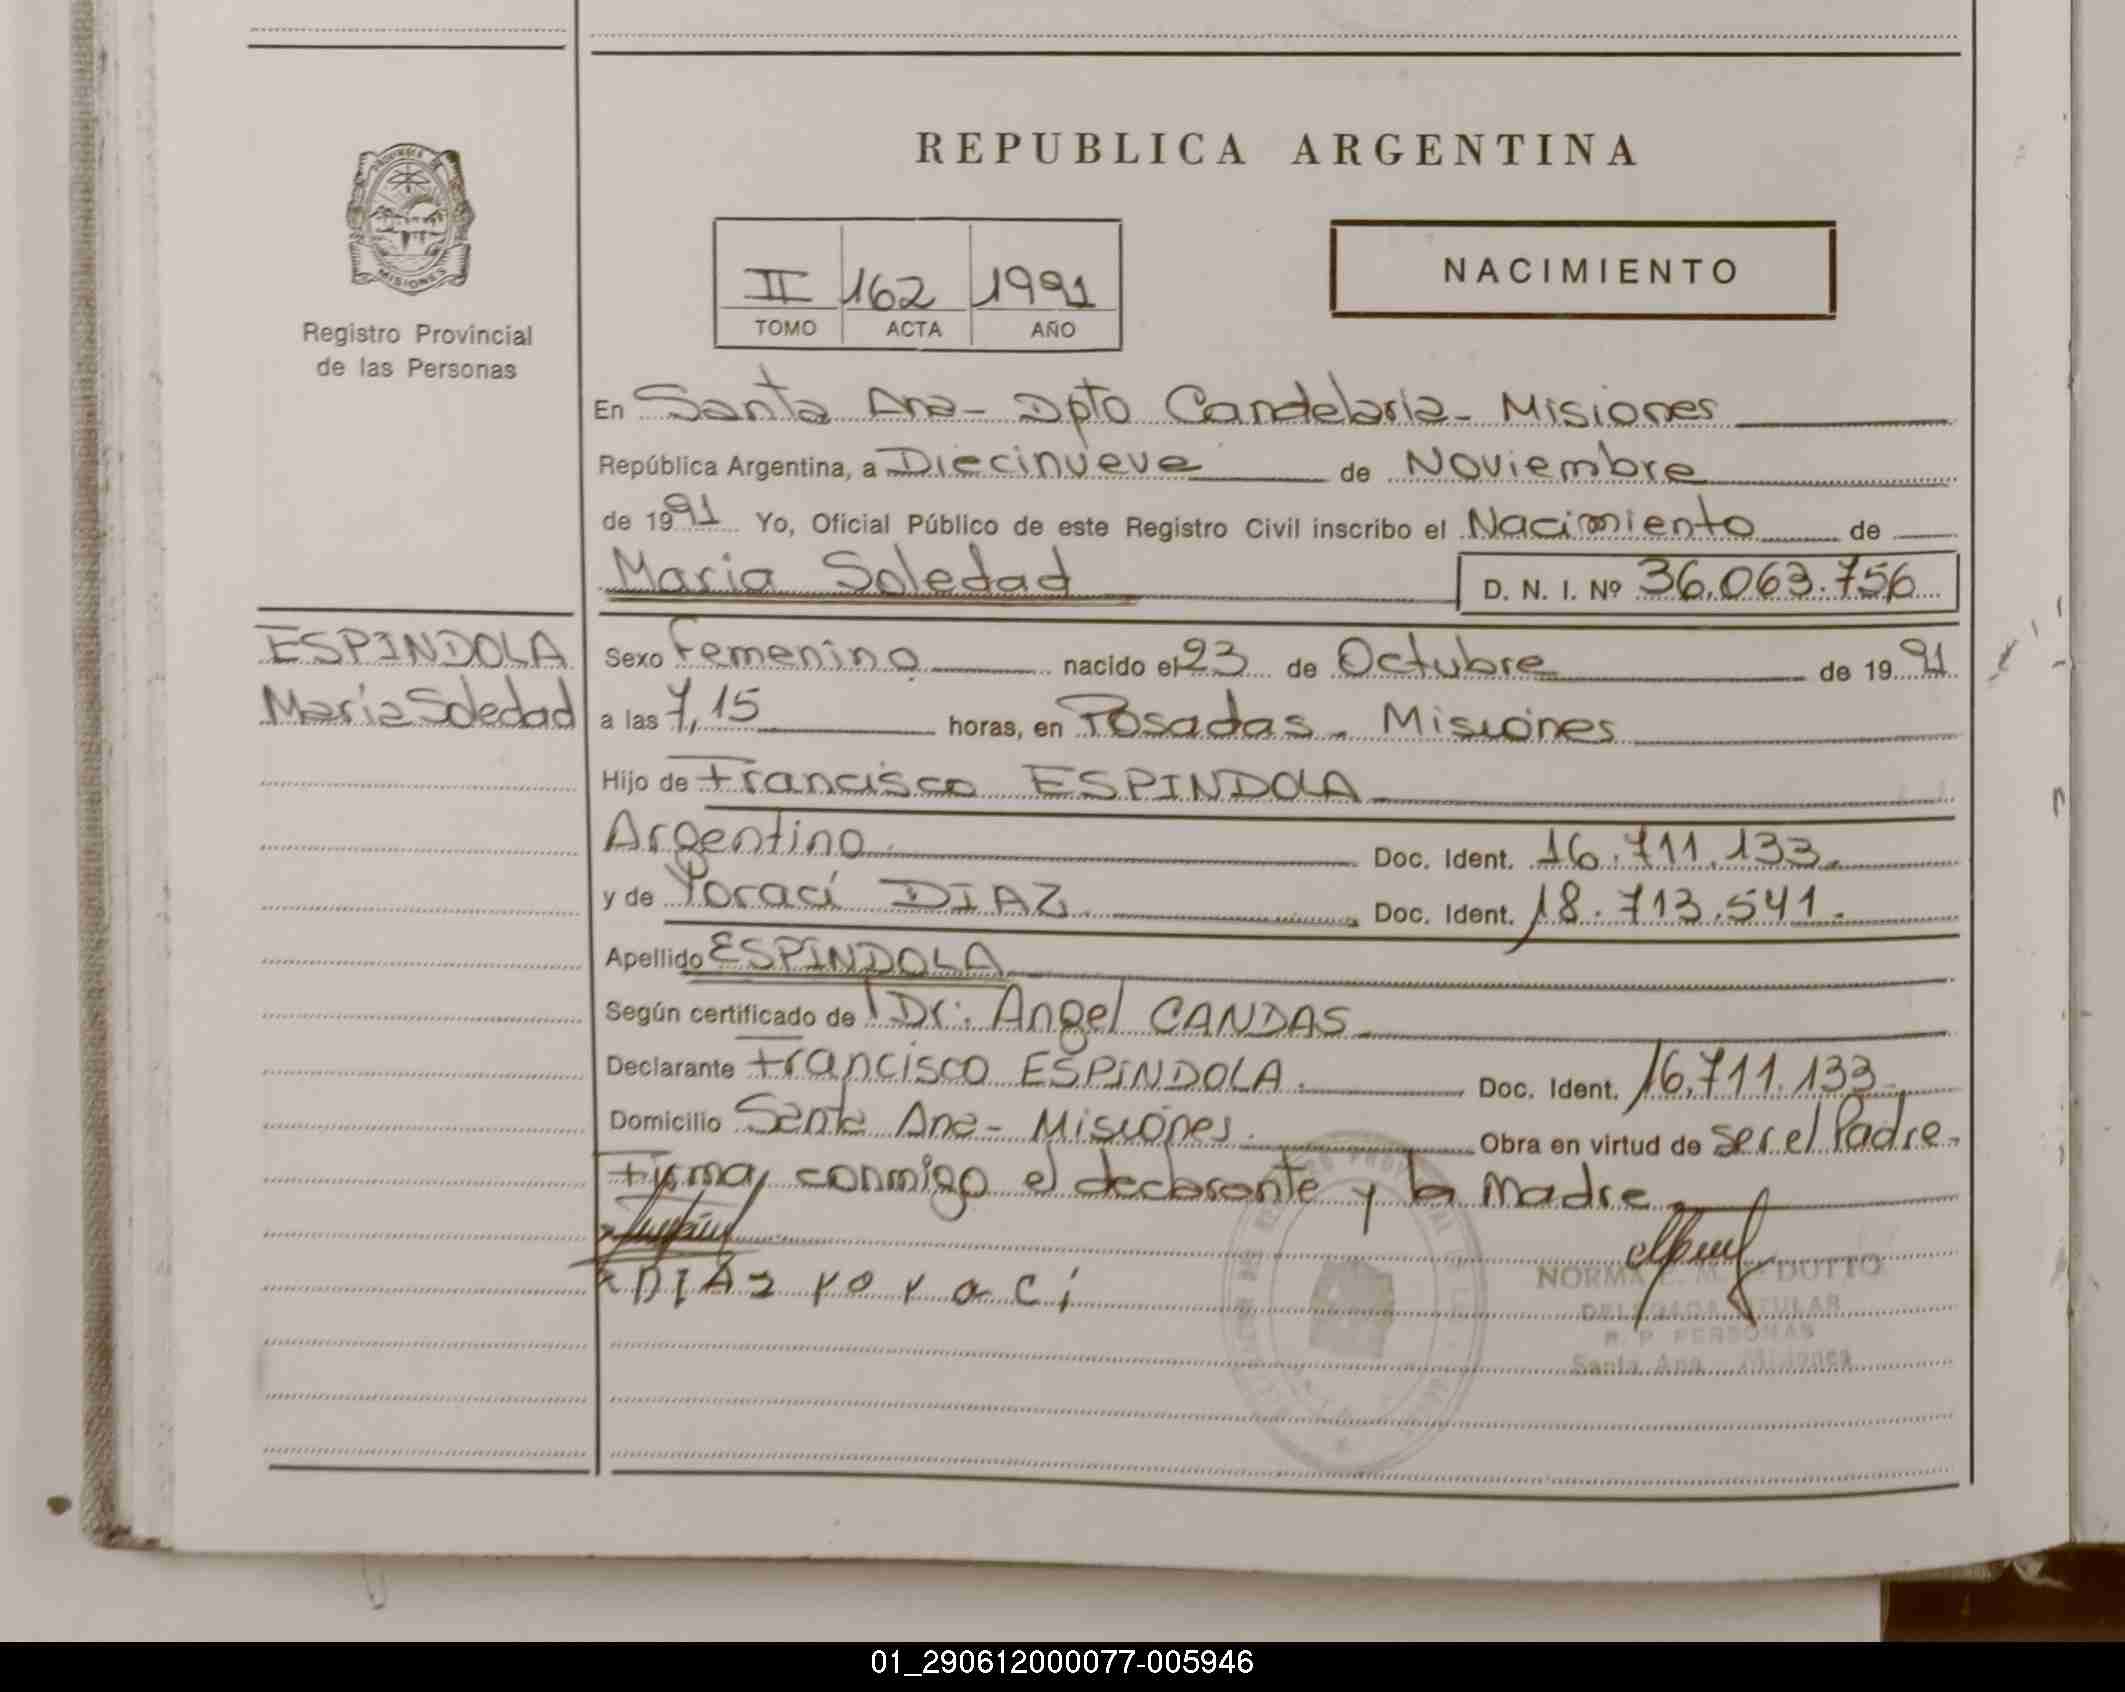 REPUBLICA ARGENTINA
PROVINCIA DE
MISIONES
Registro Provincial
de las Personas
II 162 1991
TOMO ACTA AÑO
NACIMIENTO
En Santa Ana - Dpto Candelaria - Misiones
República Argentina, a Diecinueve de Noviembre
de 1991 Yo, Oficial Público de este Registro Civil inscribo el Nacimiento de
Maria Soledad D. N. I. Nº 36.063.756
ESPINDOLA
Maria Soledad
Sexo Femenino nacido el 23 de Octubre de 1991
a las 7,15 horas, en Posadas - Misiones
Hijo de Francisco ESPINDOLA
Argentino Doc. Ident. 16.711.133.
y de Yoraci DIAZ Doc. Ident. 18.713.541.
Apellido ESPINDOLA
Según certificado de Dr: Angel CANDAS
Declarante Francisco ESPINDOLA. Doc. Ident. 16.711.133
Domicilio Santa Ana - Misiones. Obra en virtud de ser el Padre.
Firma, conmigo el declarante y la Madre
DIAZ Yoraci
NORMA DUTTO
DELEGADA TITULAR
R. P. PERSONAS
Santa Ana Misiones
01_290612000077-005946